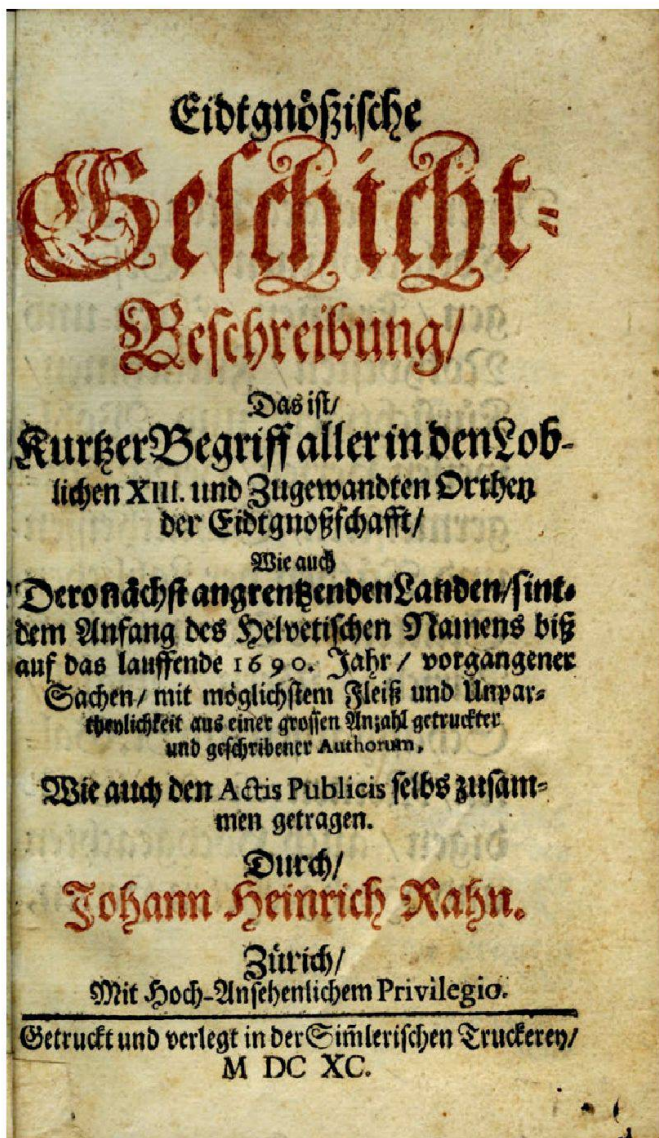 Eidtgnößische
Geschicht-
Beschreibung/
Das ist/
Kurtzer Begriff aller in den Lob-
lichen XIII. und Zugewandten Orthen
der Eidtgnoßschafft/
Wie auch
Dero nächst angrentzenden Landen/sint-
dem Anfang des Helvetischen Namens biß
auf das lauffende 1690. Jahr/ vorgangener
Sachen/ mit möglichstem Fleiß und Unpar-
theylichkeit aus einer grossen Anzahl getruckter
und geschribener Authorum,
Wie auch den Actis Publicis selbs zusam-
men getragen.
Durch/
Johann Heinrich Rahn.
Zürich/
Mit Hoch-Ansehenlichem Privilegio.
Getruckt und verlegt in der Sim̄lerischen Truckerey/
M DC XC.